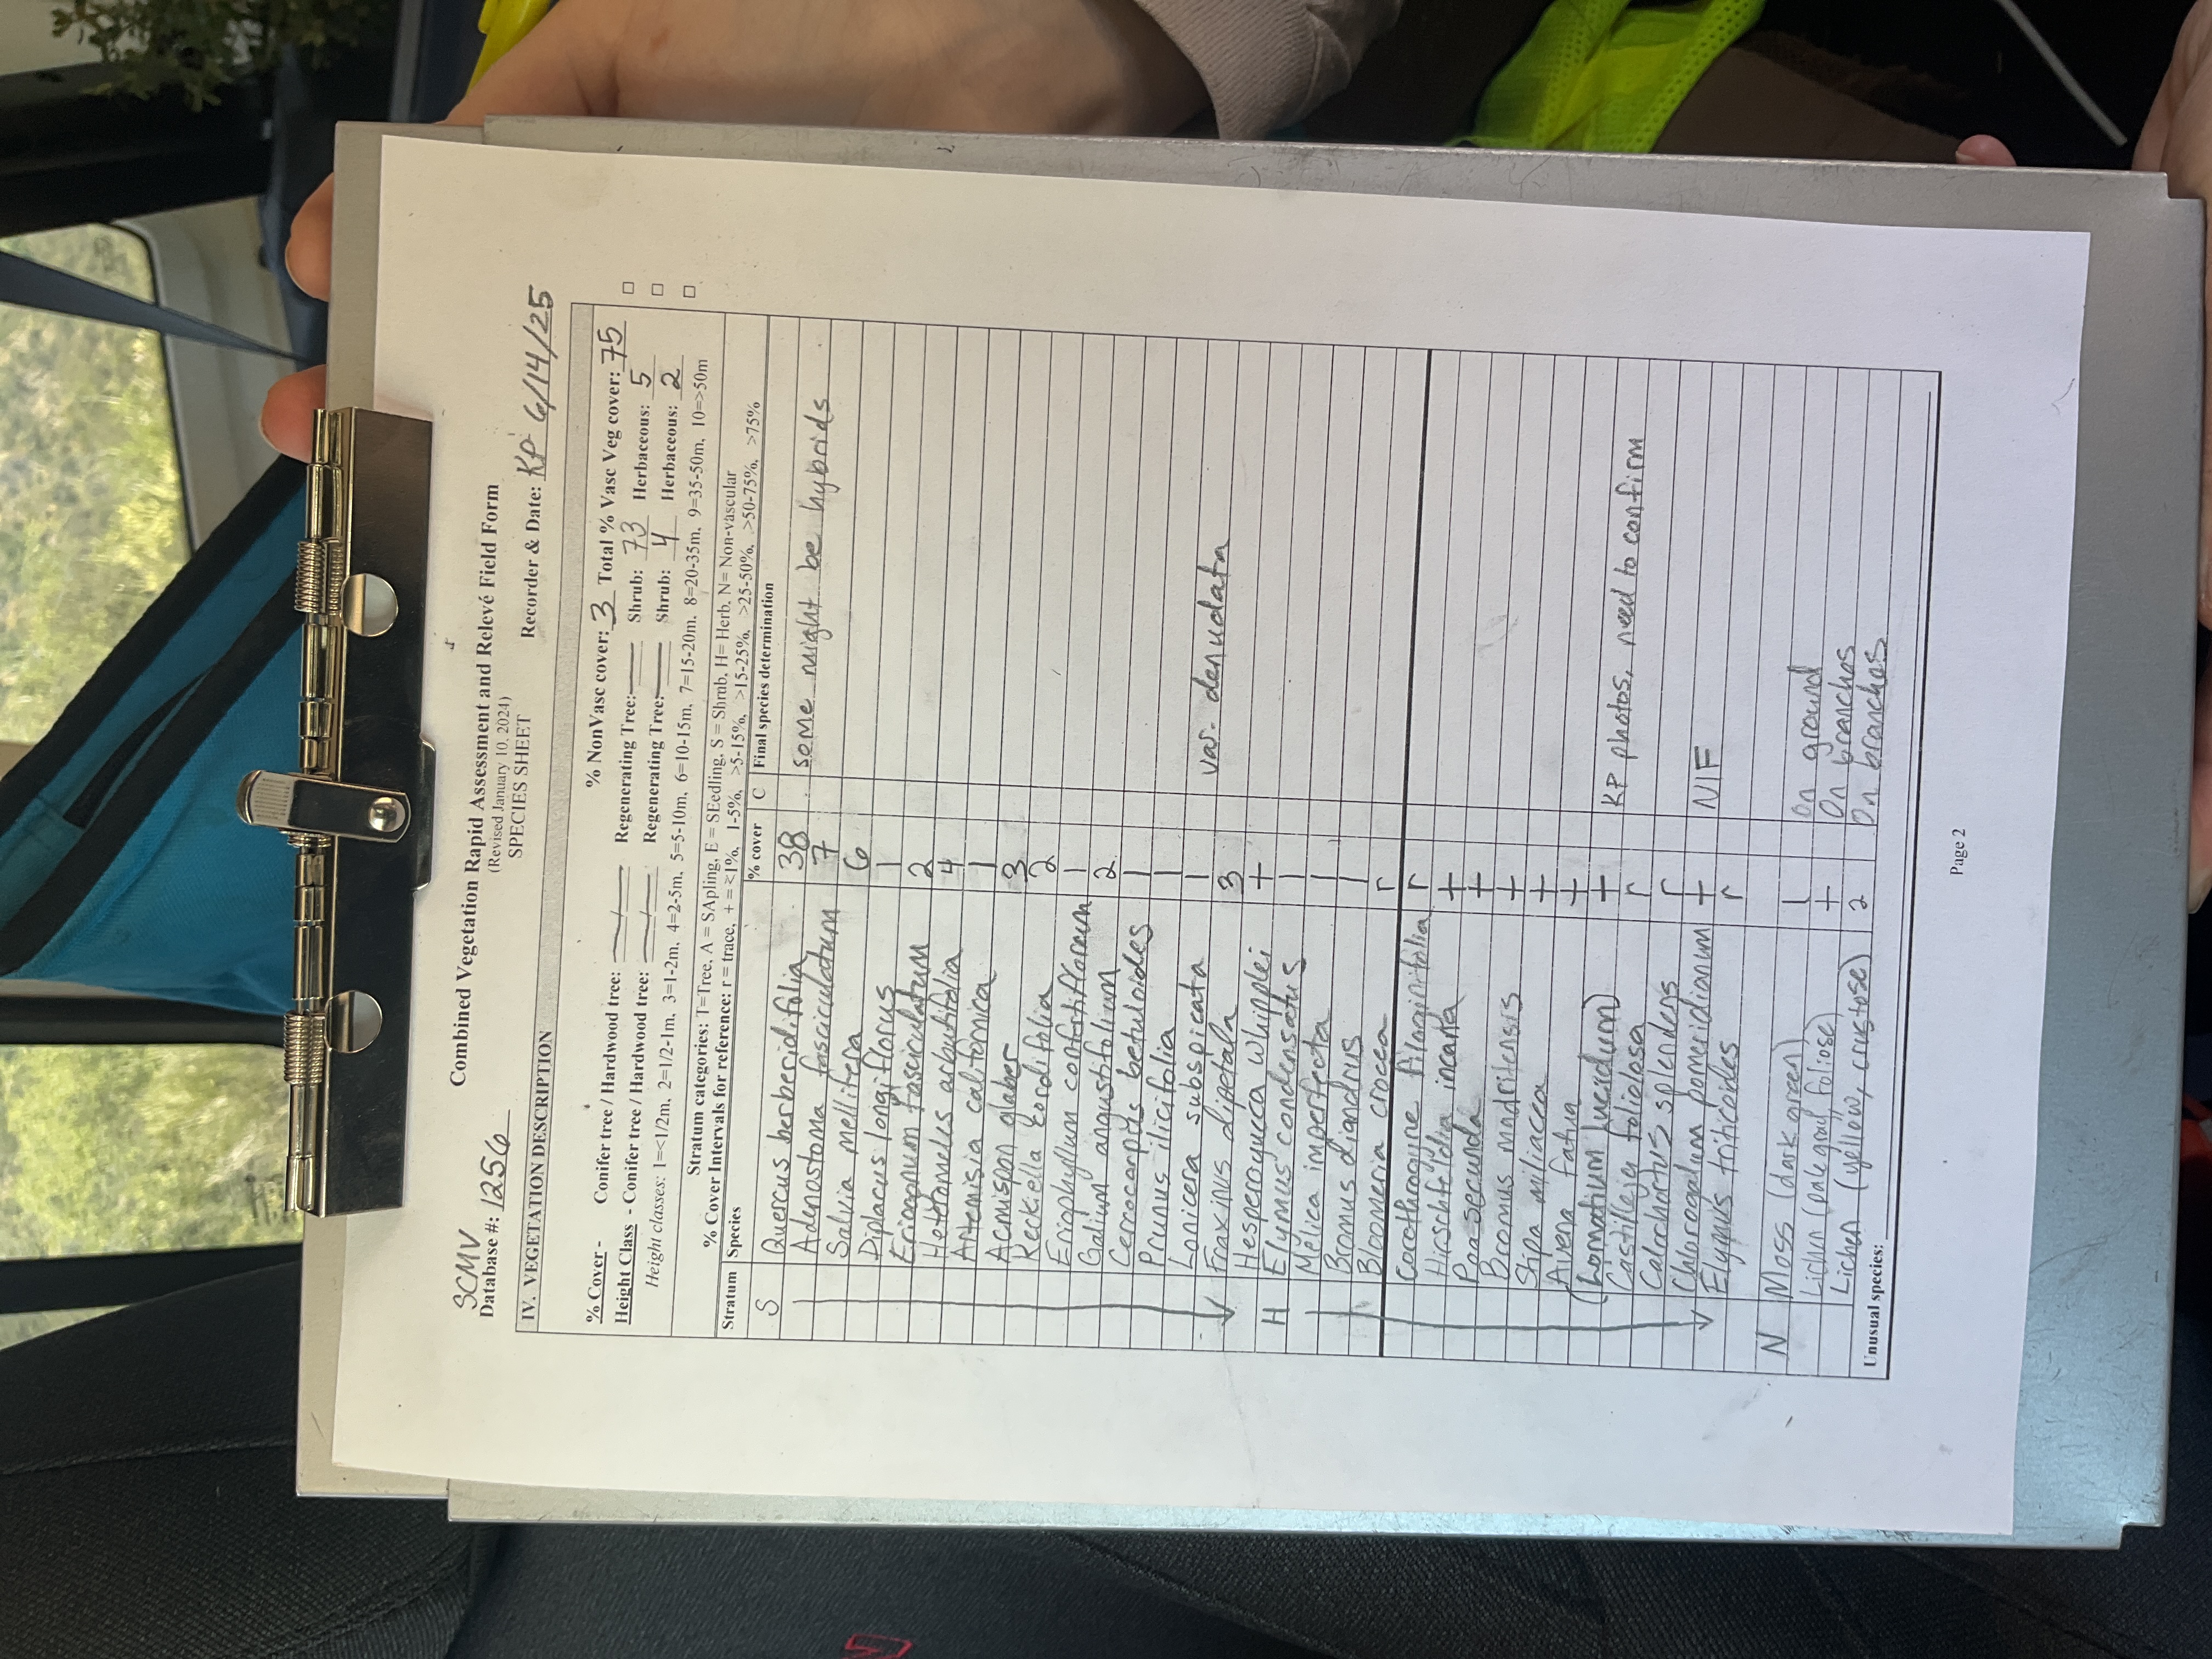 Combined Vegetation Rapid Assessment and Relevé Field Form
(Revised January 10, 2024)
SCMV SPECIES SHEET
Database #: 1256 Recorder & Date: KP 6/14/25
IV. VEGETATION DESCRIPTION
% NonVasc cover: 3 Total % Vasc Veg cover: 75
% Cover - Conifer tree / Hardwood tree: — / — Regenerating Tree: — Shrub: 73 Herbaceous: 5 □
Height Class - Conifer tree / Hardwood tree: — / — Regenerating Tree: — Shrub: 4 Herbaceous: 2 □
Height classes: 1=<1/2m, 2=1/2-1m, 3=1-2m, 4=2-5m, 5=5-10m, 6=10-15m, 7=15-20m, 8=20-35m, 9=35-50m, 10=>50m □
Stratum categories: T=Tree, A = SApling, E = SEedling, S = Shrub, H= Herb, N= Non-vascular
% Cover Intervals for reference: r = trace, + = <1%, 1-5%, >5-15%, >15-25%, >25-50%, >50-75%, >75%
Stratum Species % cover C Final species determination
S Quercus berberidifolia 38
Adenostoma fasciculatum 7 some might be hybrids
Salvia mellifera 6
Diplacus longiflorus 1
Eriogonum fasciculatum 2
Heteromeles arbutifolia 4
Artemisia californica 1
Acmispon glaber 3
Keckiella cordifolia 2
Eriophyllum confertiflorum 1
Galium angustifolium 2
Cercocarpus betuloides 1
Prunus ilicifolia 1
Lonicera subspicata 1 var. denudata
Fraxinus dipetala 3
Hesperoyucca whipplei +
H Elymus condensatus 1
Melica imperfecta 1
Bromus diandrus 1
Bloomeria crocea r
Corethrogyne filaginifolia r
Hirschfeldia incana +
Poa secunda +
Bromus madritensis +
Stipa miliacea +
Avena fatua +
(Lomatium lucidum) + KP photos, need to confirm
Castilleja foliolosa r
Calochortus splendens r
Chlorogalum pomeridianum + NIF
Elymus triticoides r
N Moss (dark green) 1 On ground
Lichen (pale gray, foliose) + On branches
Lichen (yellow, crustose) 2 On branches
Unusual species:
Page 2